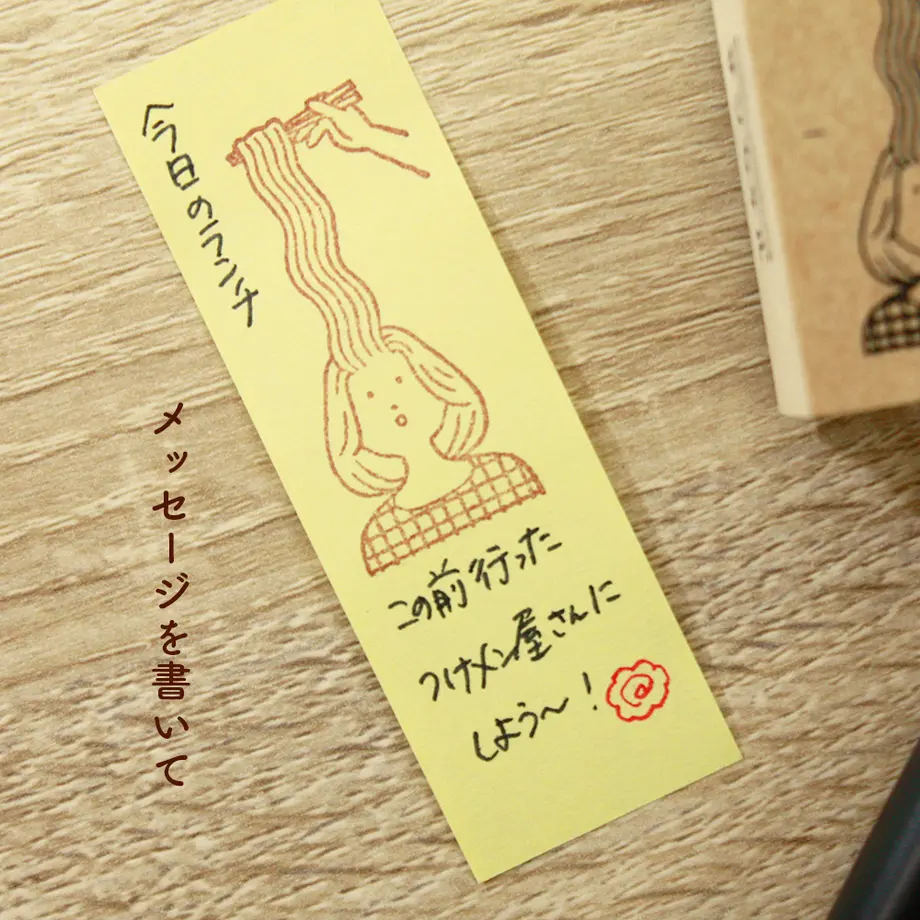 今日のランチ
この前行った
つけメン屋さんに
しよう〜！
メッセージを書いて